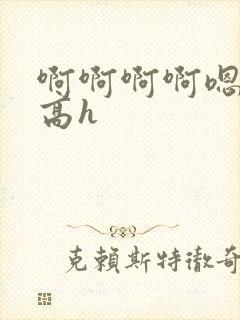 啊啊啊啊嗯
高h
克賴斯特徹奇